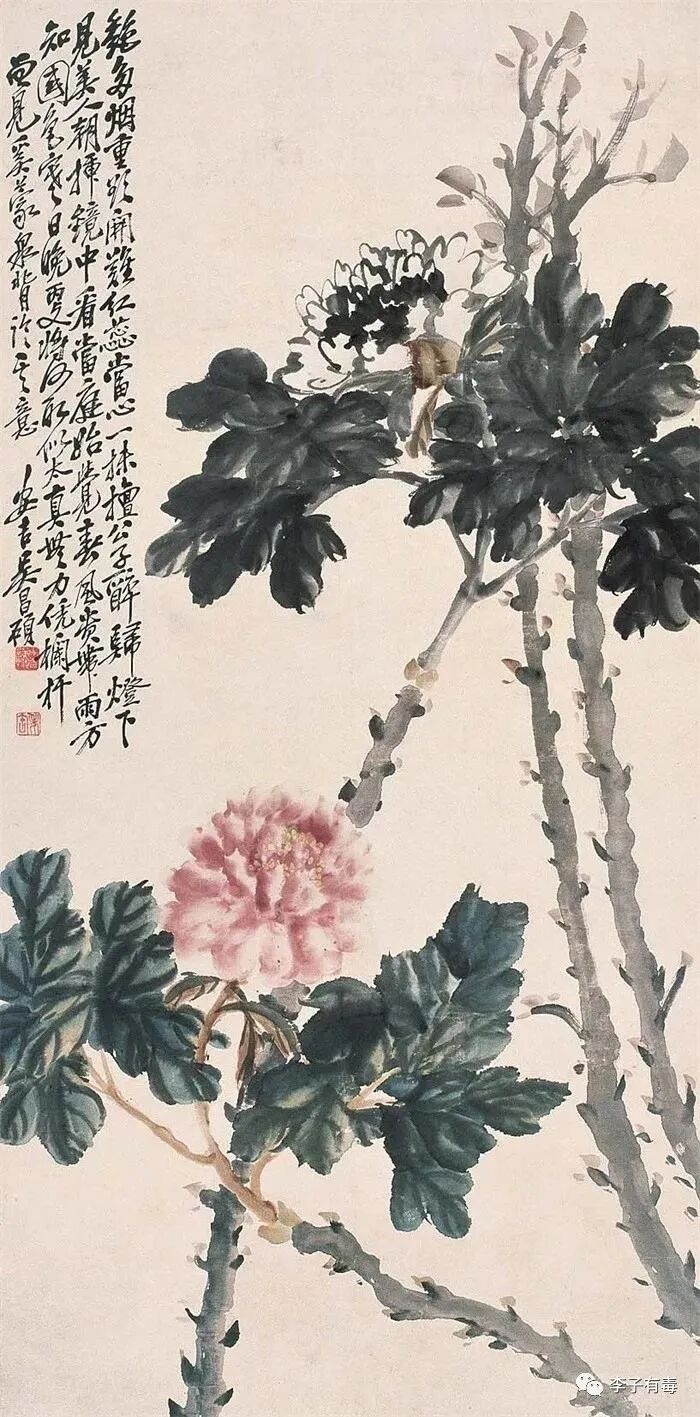 艷多烟重欲開難紅蕊當心一抹檀公子醉歸燈下
見美人朝插鏡中看當庭始覺春風貴帶雨方
知國色寒日晚更將何所似太真無力凭欄杆
曾見奚蒙泉背臨其意
安吉吳昌碩
李子有毒